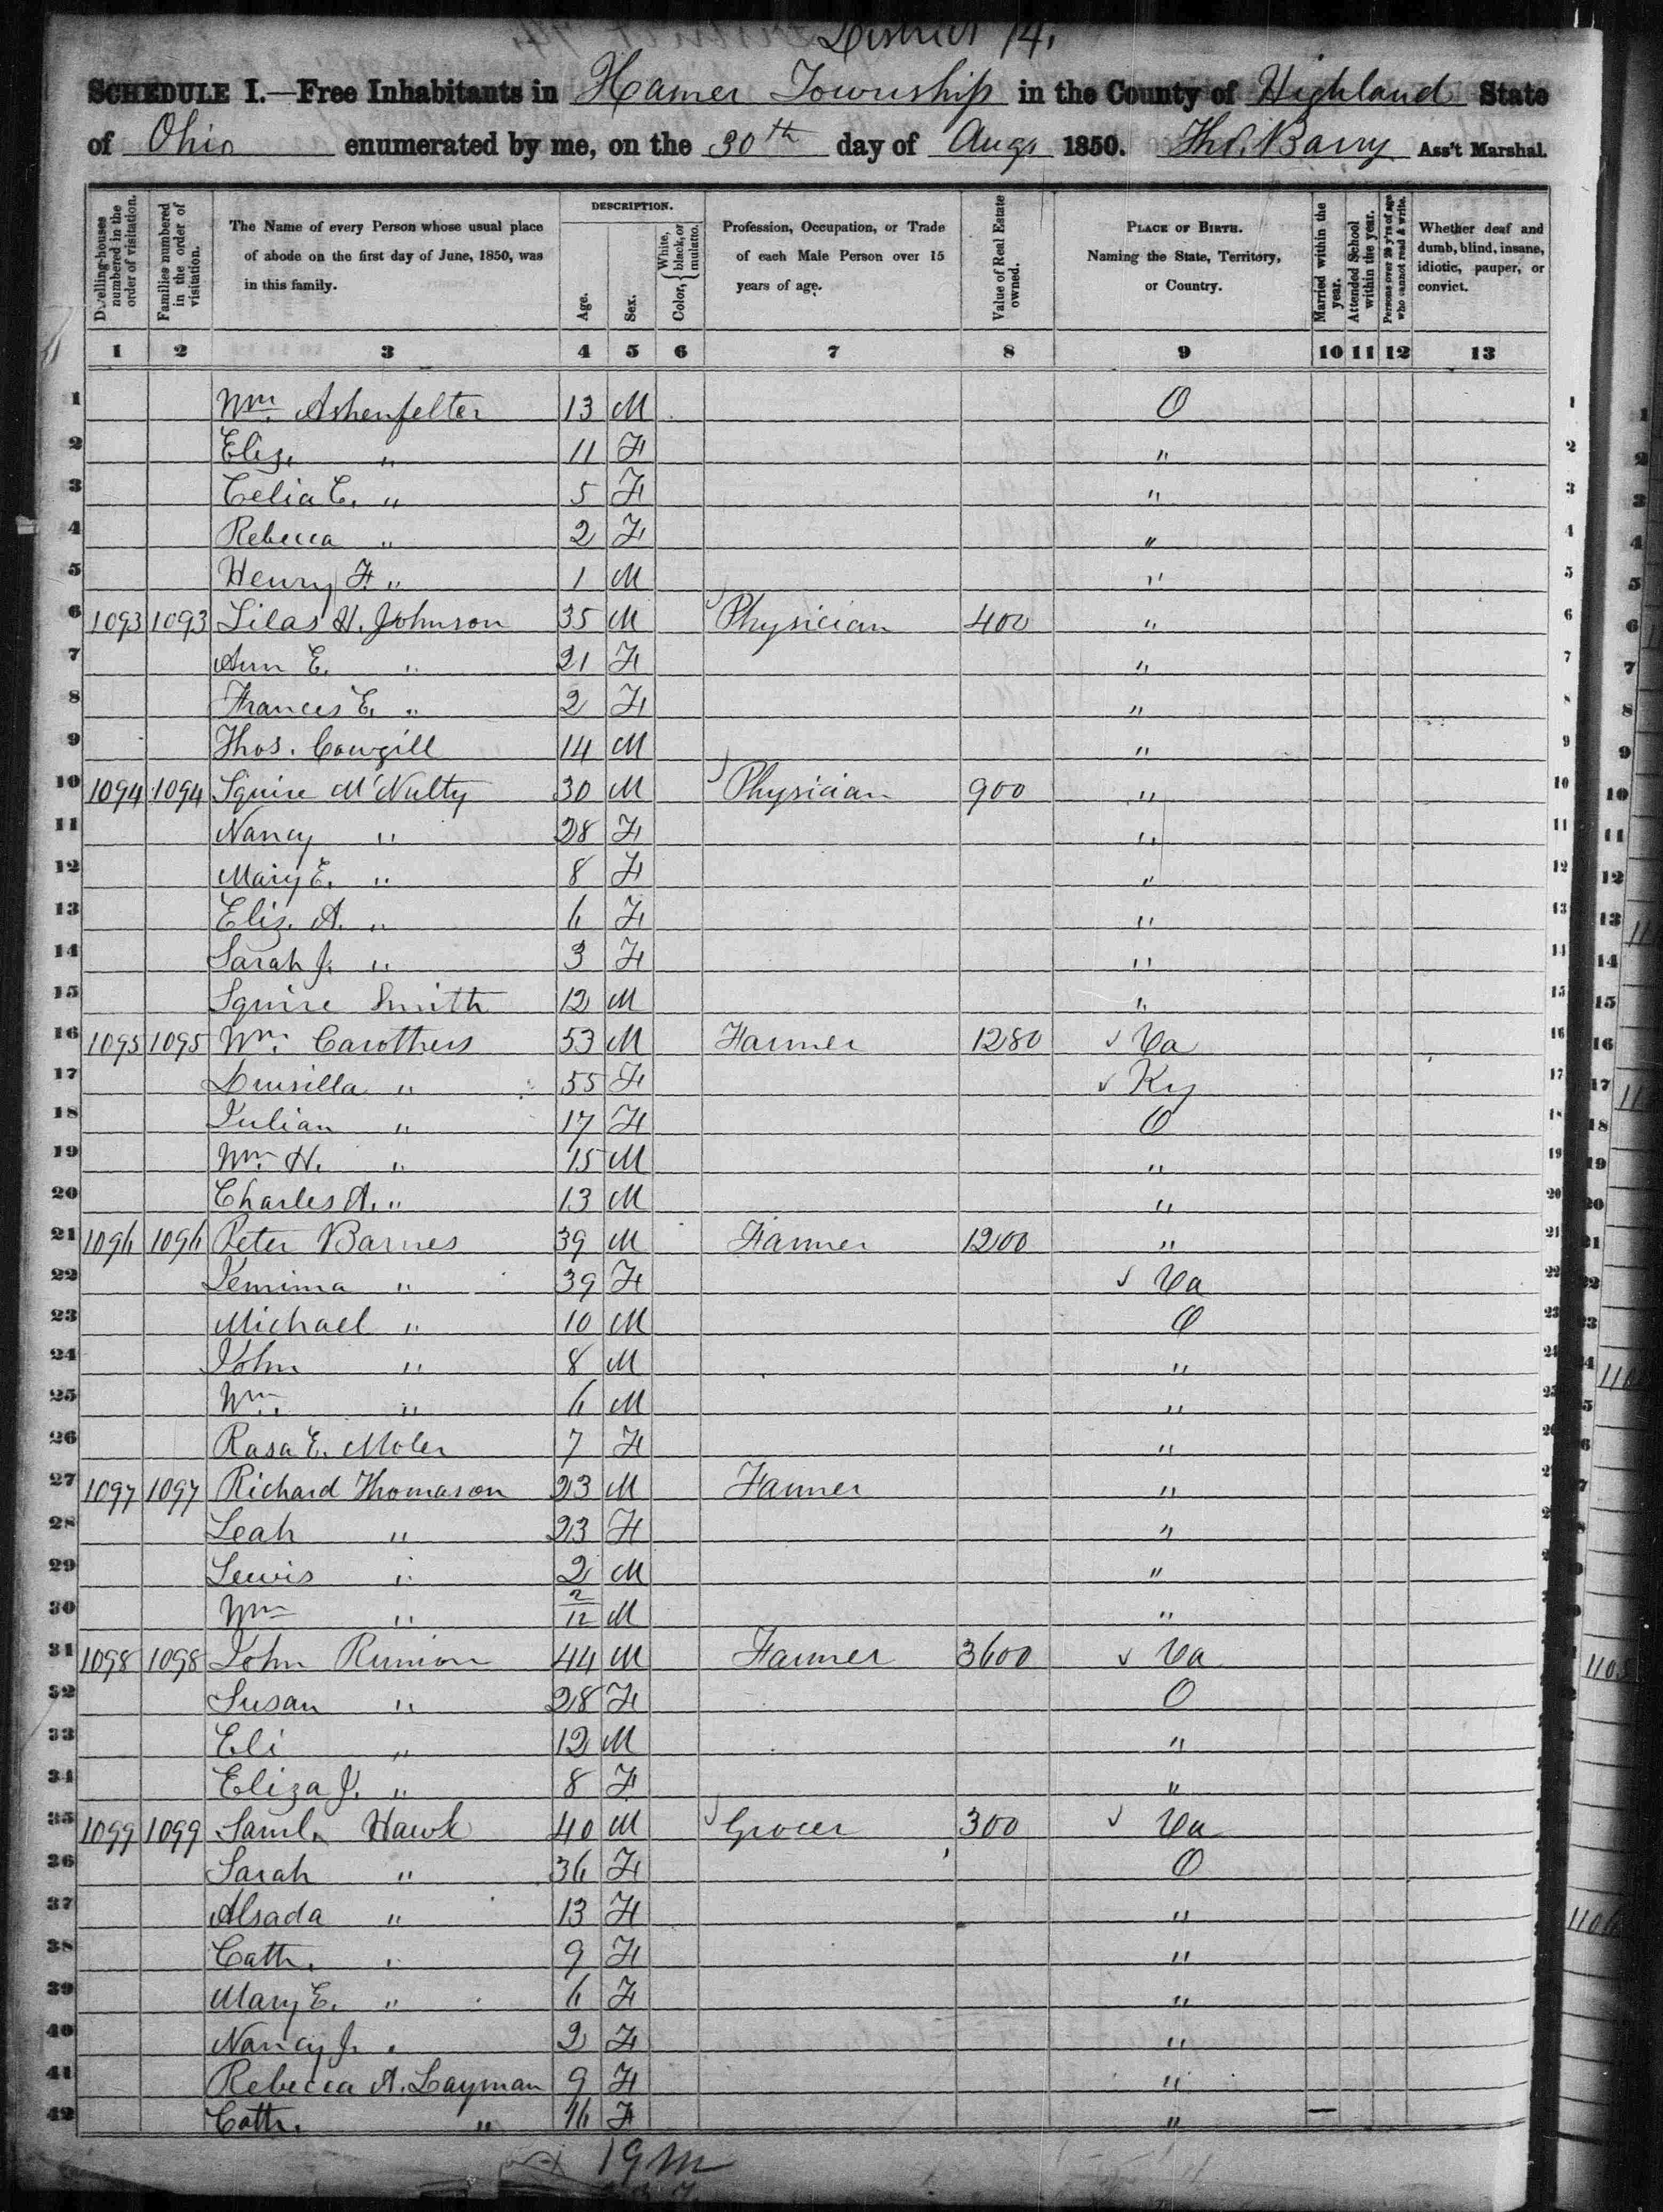 District 14.
SCHEDULE I.—Free Inhabitants in Hamer Township in the County of Highland State
of Ohio enumerated by me, on the 30th day of Augt 1850. Barry Ass't Marshal.
Dwelling-houses numbered in the order of visitation.
Families numbered in the order of visitation.
The Name of every Person whose usual place of abode on the first day of June, 1850, was in this family.
DESCRIPTION.
Age.
Sex.
Color, { White, black, or mulatto.
Profession, Occupation, or Trade of each Male Person over 15 years of age.
Value of Real Estate owned.
PLACE OF BIRTH. Naming the State, Territory, or Country.
Married within the year.
Attended School within the year.
Persons over 20 y'rs of age who cannot read & write.
Whether deaf and dumb, blind, insane, idiotic, pauper, or convict.
1 2 3 4 5 6 7 8 9 10 11 12 13
1 Wm. Ashenfelter 13 M O 1
2 Eliz. " 11 F " 2
3 Celia C. " 5 F " 3
4 Rebecca " 2 F " 4
5 Henry F. " 1 M " 5
6 1093 1093 Silas H. Johnson 35 M Physician 400 " 6
7 Ann E. " 21 F " 7
8 Frances E. " 2 F " 8
9 Thos. Cowgill 14 M " 9
10 1094 1094 Squire McNulty 30 M Physician 900 " 10
11 Nancy " 28 F " 11
12 Mary E. " 8 F " 12
13 Eliz. A. " 6 F " 13
14 Sarah J. " 3 F " 14
15 Squire Smith 12 M " 15
16 1095 1095 Wm. Carothers 53 M Farmer 1280 ✓ Va 16
17 Drusilla " 55 F ✓ Ky 17
18 Julian " 17 F O 18
19 Wm. H. " 15 M " 19
20 Charles A. " 13 M " 20
21 1096 1096 Peter Barnes 39 M Farmer 1200 " 21
22 Jemima " 39 F ✓ Va 22
23 Michael " 10 M O 23
24 John " 8 M " 24
25 Wm. " 6 M " 25
26 Rasa E. Moler 7 F "
27 1097 1097 Richard Thomason 23 M Farmer "
28 Leah " 23 F "
29 Lewis " 2 M "
30 Wm " 2/12 M "
31 1098 1098 John Runion 44 M Farmer 3600 ✓ Va
32 Susan " 28 F O
33 Eli " 12 M "
34 Eliza J. " 8 F "
35 1099 1099 Saml. Hawk 40 M Grocer 300 ✓ Va
36 Sarah " 36 F O
37 Alsada " 13 F "
38 Cath. " 9 F "
39 Mary E. " 6 F "
40 Nancy J. " 2 F "
41 Rebecca A. Layman 9 F "
42 Cath. " 16 F " —
19 M